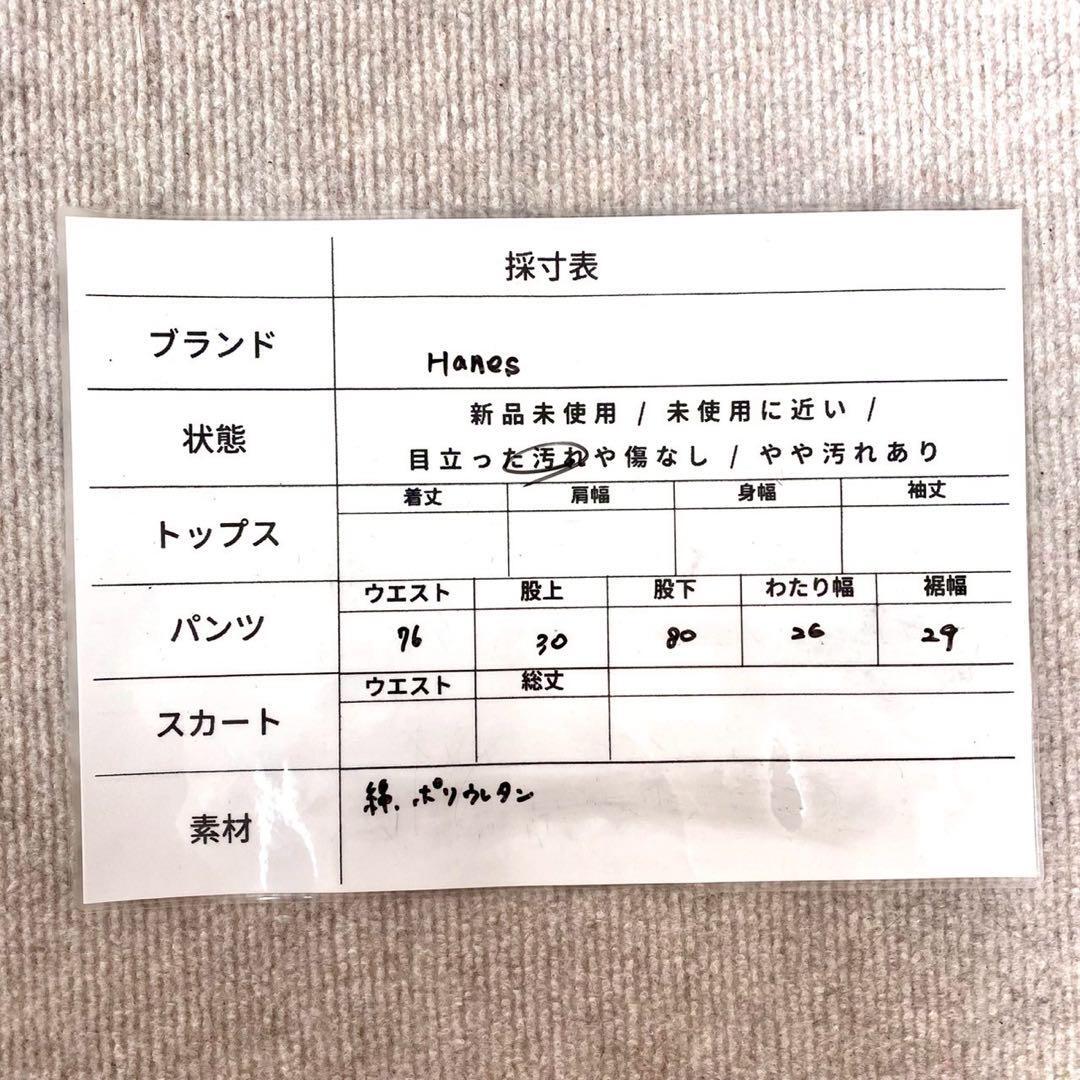 採寸表
ブランド Hanes
状態 新品未使用 / 未使用に近い /
目立った汚れや傷なし / やや汚れあり
トップス 着丈 肩幅 身幅 袖丈
パンツ ウエスト 股上 股下 わたり幅 裾幅
76 30 80 26 29
スカート ウエスト 総丈
素材 綿、ポリウレタン